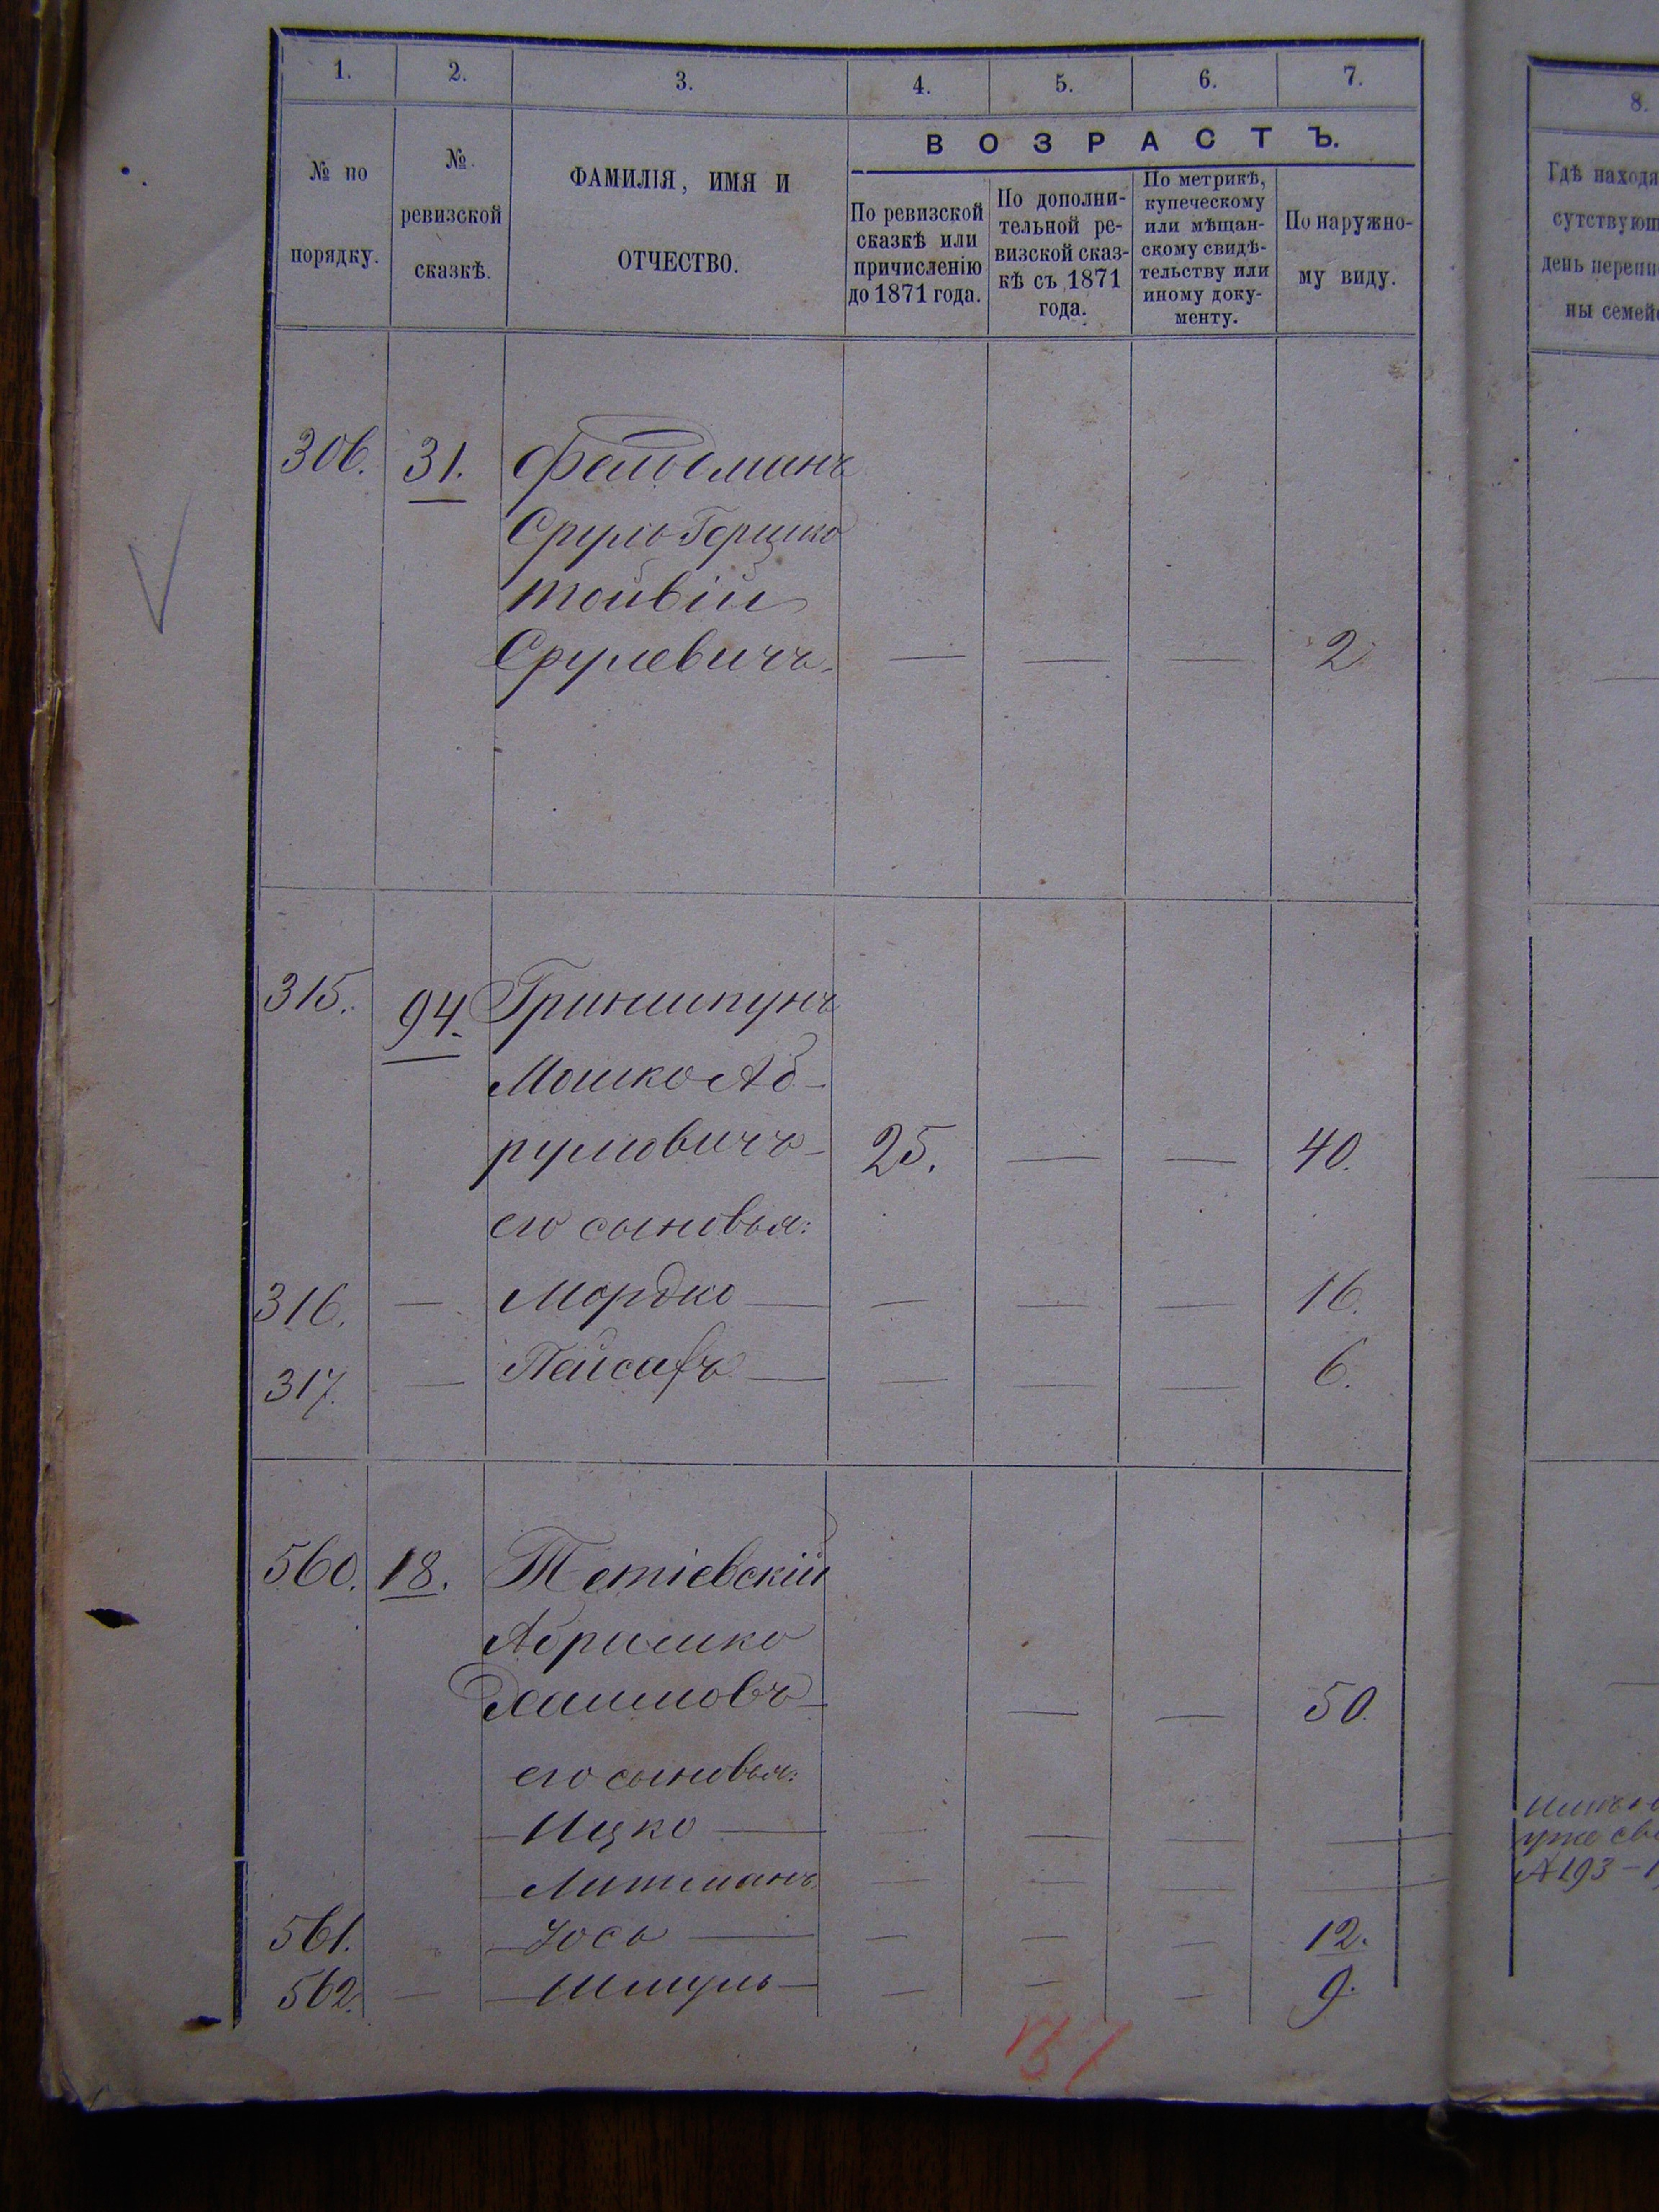 1. 2. 3. 4. 5. 6. 7.
8.
№ по порядку.
№ ревизской сказкѣ.
ФАМИЛІЯ, ИМЯ И ОТЧЕСТВО.
ВОЗРАСТЪ.
По ревизской сказкѣ или причисленію до 1871 года.
По дополни-
тельной ре-
визской сказ-
кѣ съ 1871
года.
По метрикѣ,
купеческому
или мѣщан-
скому свидѣ-
тельству или
иному доку-
менту.
По наружно-
му виду.
Гдѣ
день
ны
306. 31. Фельдманъ
Сруль Гершко
Тойвій
Срулевичъ — — — 2
315. 94. Гриншпунъ
Мошко Аб-
румовичъ 25. — — 40.
его сыновья:
316. — Мордко — — — — 16.
317. — Пейсахъ — — — — 6.
560. 18. Тетіевскій
Абрамко
Хаимовъ — — 50.
его сыновья:
Ицко — — — — —
Литманъ — — — —
561. Іось — — — — 12.
562. — Шмуль — — — — 9.
уже